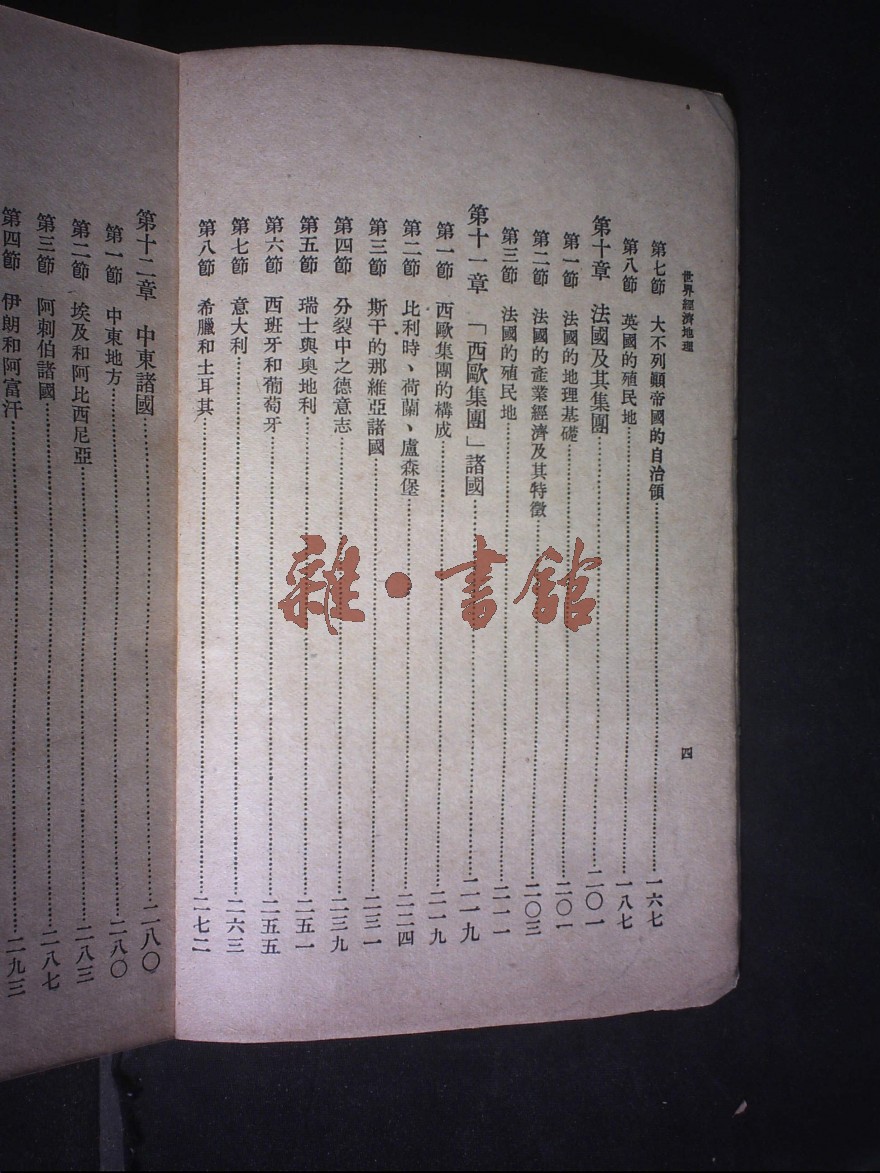 世界經濟地理
四
第七節 大不列顛帝國的自治領……一六七
第八節 英國的殖民地……一八七
第十章 法國及其集團……二〇一
第一節 法國的地理基礎……二〇一
第二節 法國的產業經濟及其特徵……二〇三
第三節 法國的殖民地……二一一
第十一章 「西歐集團」諸國……二一九
第一節 西歐集團的構成……二一九
第二節 比利時、荷蘭、盧森堡……二二四
第三節 斯干的那維亞諸國……二三一
第四節 分裂中之德意志……二三九
第五節 瑞士與奧地利……二五一
第六節 西班牙和葡萄牙……二五五
第七節 意大利……二六三
第八節 希臘和土耳其……二七二
第十二章 中東諸國……二八〇
第一節 中東地方……二八〇
第二節 埃及和阿比西尼亞……二八三
第三節 阿剌伯諸國……二八七
第四節 伊朗和阿富汗……二九三
雜·書館